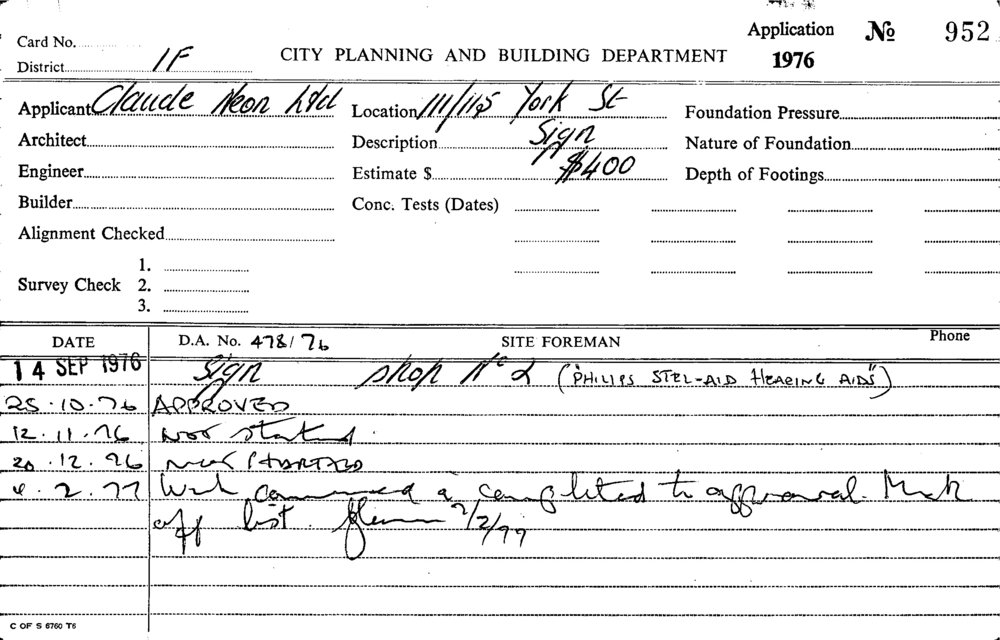 Application No 952
Card No.
District 1F
CITY PLANNING AND BUILDING DEPARTMENT
1976
Applicant Claude Neon Ltd Location 111/115 York St Foundation Pressure
Architect Description Sign Nature of Foundation
Engineer Estimate $ $400 Depth of Footings
Builder Conc. Tests (Dates)
Alignment Checked
1.
Survey Check 2.
3.
DATE D.A. No. 478/76 SITE FOREMAN Phone
14 SEP 1976 Sign shop No 2 ("PHILIPS STEL-AID HEARING AIDS")
25.10.76 APPROVED
12.11.76 Not started.
20.12.76 STARTED
4.2.77 Work commenced & completed to approval. Mark
off list. 2/77
C OF S 6760 T6